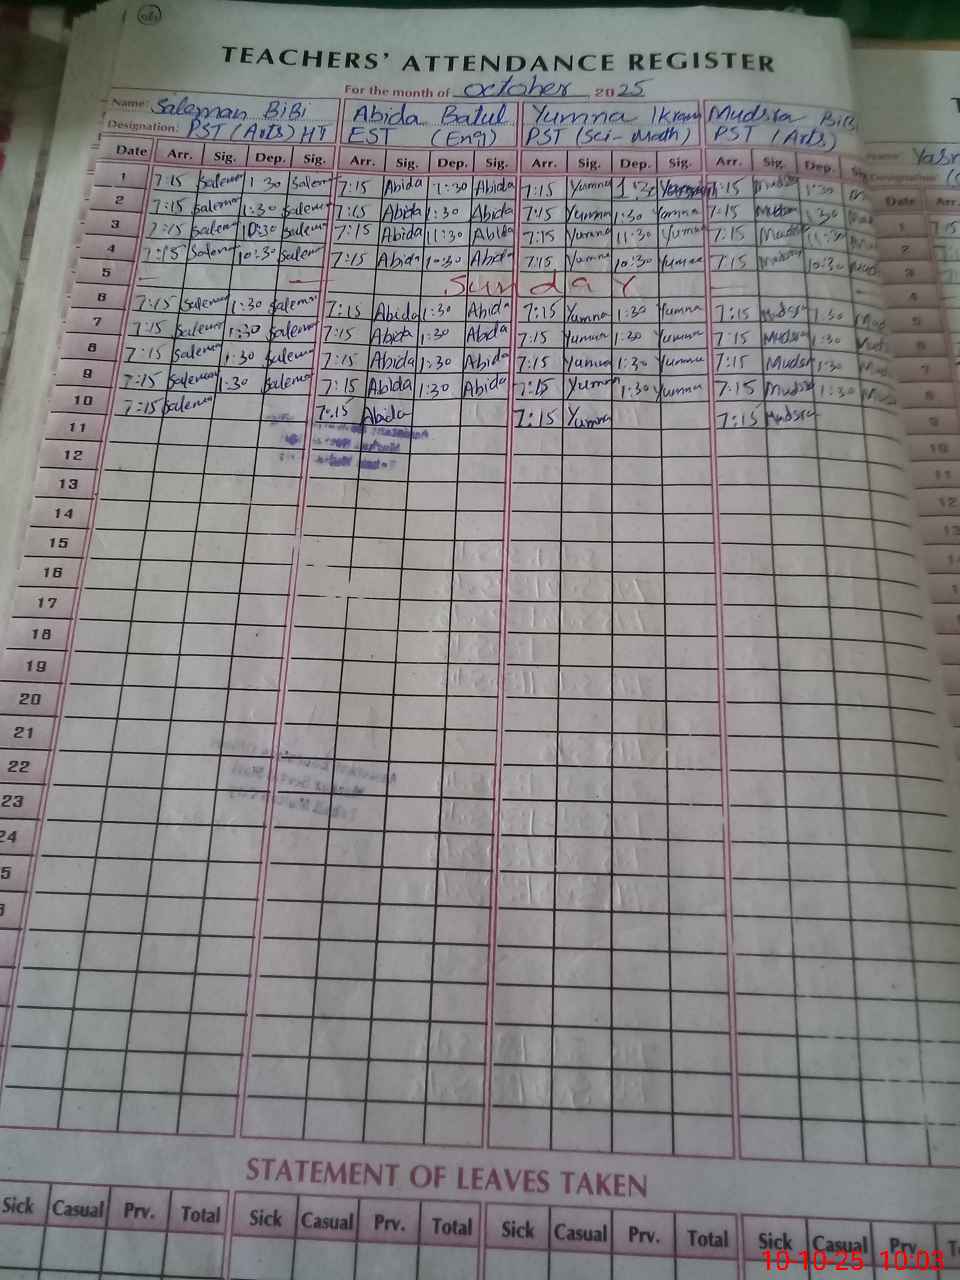 TEACHERS' ATTENDANCE REGISTER
For the month of October 2025
Name: Saleman BiBi Abida Batul Yumna Ikram Mudsra BiBi
Designation: PST (Arts) HT EST (Eng) PST (Sci-Math) PST (Arts)
Date Arr. Sig. Dep. Sig. Arr. Sig. Dep. Sig. Arr. Sig. Dep. Sig. Arr. Sig. Dep.
1 7:15 Salema 1:30 Salema 7:15 Abida 1:30 Abida 7:15 Yumna 1:30 Yumna 7:15 Mudsra 1:30
2 7:15 Salema 1:30 Salema 7:15 Abida 1:30 Abida 7:15 Yumna 1:30 Yumna 7:15 Mudsra 1:30
3 7:15 Salema 10:30 Salema 7:15 Abida 11:30 Abida 7:15 Yumna 11:30 Yumna 7:15 Mudsra 11:30
4 7:15 Salema 10:30 Salema 7:15 Abida 10:30 Abida 7:15 Yumna 10:30 Yumna 7:15 Mudsra 10:30 Mud
5 Sunday
6 7:15 Salema 1:30 Salema 7:15 Abida 1:30 Abida 7:15 Yumna 1:30 Yumna 7:15 Mudsra 1:30 Mud
7 7:15 Salema 1:30 Salema 7:15 Abida 1:30 Abida 7:15 Yumna 1:30 Yumna 7:15 Mudsra 1:30 Mud
8 7:15 Salema 1:30 Salema 7:15 Abida 1:30 Abida 7:15 Yumna 1:30 Yumna 7:15 Mudsra 1:30
9 7:15 Salema 1:30 Salema 7:15 Abida 1:30 Abida 7:15 Yumna 1:30 Yumna 7:15 Mudsra 1:30 Mud
10 7:15 Salema 7:15 Abida 7:15 Yumna 7:15 Mudsra
11
12
13
14
15
16
17
18
19
20
21
22
23
24
5
STATEMENT OF LEAVES TAKEN
Sick Casual Prv. Total Sick Casual Prv. Total Sick Casual Prv. Total Sick Casual Prv.
10-10-25 10:03